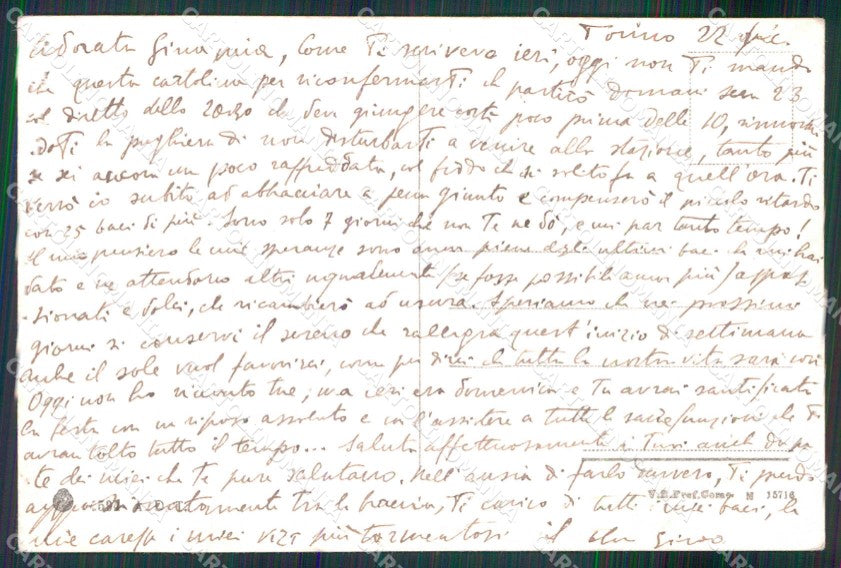 Torino 22 dic.
Adorata Gina mia, Come Ti scrivevo ieri, oggi non Ti mando
che questa cartolina per riconfermarTi che partirò domani sera 23
col diretto delle 20.30 che deve giungere costì poco prima delle 10, rinnovan
doTi la preghiera di non disturbarTi a venire alla stazione, tanto più
se sei ancora un poco raffreddata, col freddo che di solito fa a quell'ora. Ti
verrò io subito ad abbracciare appena giunto e compenserò il piccolo ritardo
con 25 baci di più. Sono solo 7 giorni che non Te ne dò, e mi par tanto tempo!
Il mio pensiero le mie speranze sono ancora piene degli ultimi baci che mi hai
dato e ne attendono altri ugualmente (se fosse possibile ancor più) appas
sionati e dolci, che ricambierò ad usura. Speriamo che nei prossimi
giorni si conservi il sereno che rallegra quest'inizio di settimana
anche il sole vuol favorirci, come per dirci che tutta la nostra vita sarà così
Oggi non ho ricevuto tue; ma ieri era domenica e Tu avrai santificata
la festa con un riposo assoluto e coll'assistere a tutte le sacre funzioni che Ti
avran tolto tutto il tempo... Saluta affettuosamente i Tuoi anche da par
te dei miei che Te pure salutano. Nell'ansia di farlo davvero, Ti prendo
appassionatamente tra le braccia, Ti carico di tutti i miei baci, le
mie carezze i miei vizi più tormentosi il Tuo Gino
V.E. Prof. Como M 15716
CARTOLINA ROMANA